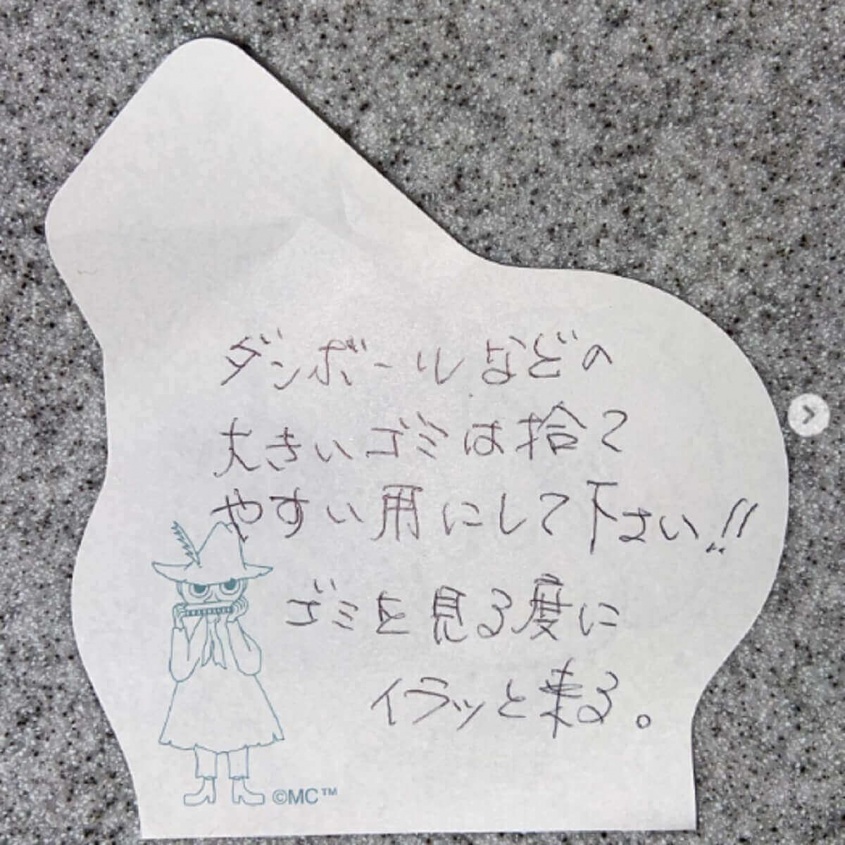 ダンボールなどの
大きいゴミは捨て
やすい用にして下さい!!
ゴミを見る度に
イラッと来る。
©MC™